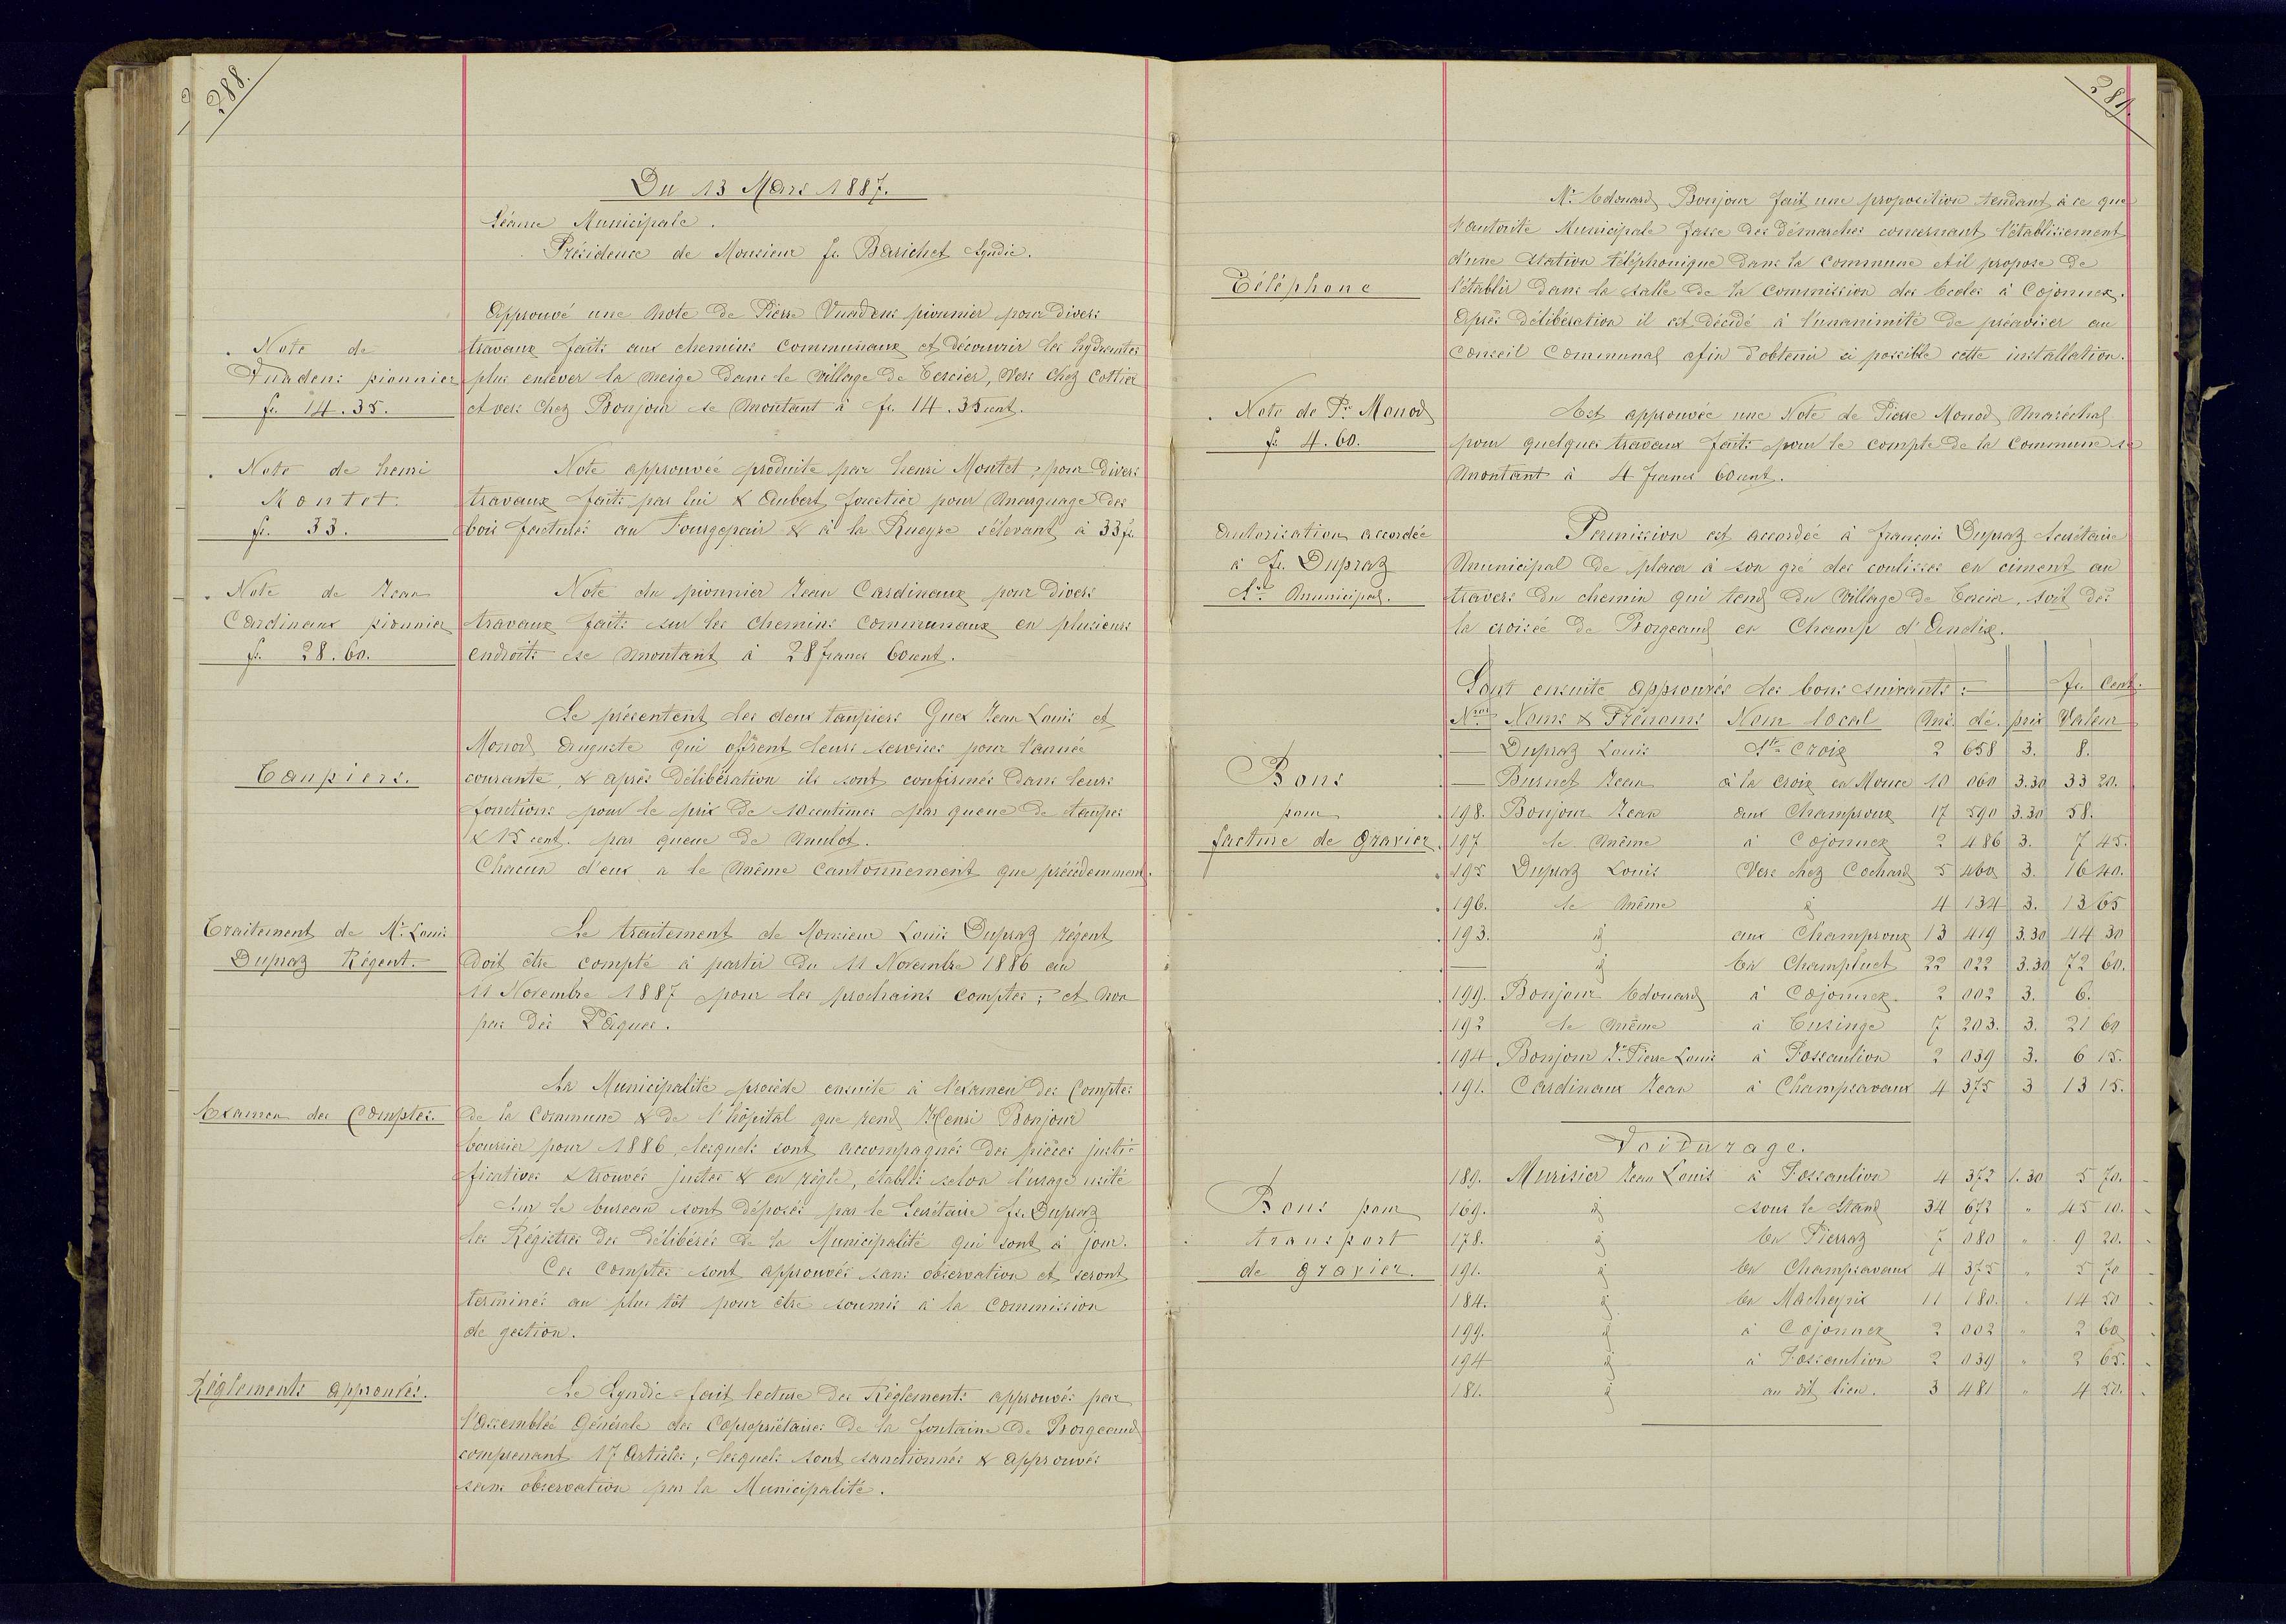 288.
Du 13 Mars 1887.
Séance Municipale.
Présidence de Monsieur fs. Barichet Syndic.
Note de
Vuadens pionnier
fr. 14.35.
Approuvé une Note de Pierre Vuadens pionnier pour divers
travaux faits aux chemins communaux et découvrir les hydrantes
plus enlever la neige dans le village de Tercier, Vers chez Cottier
et vers chez Bonjour se montant à fr. 14.35 cent.
Note de henri
Montet.
fr. 33.
Note approuvée produite par henri Montet, pour divers
travaux faits par lui & Aubert forestier pour Marquage des
bois facturés au & à la Rueyre s'élevant à 33 fr.
Note de Jean
Cardinaux pionnier
fr. 28.60.
Note du pionnier Jean Cardinaux pour divers
travaux faits sur les chemins communaux en plusieurs
endroits se montant à 28 francs 60 cent.
Taupiers.
Se présentent les deux taupiers Guex Jean Louis et
Monod Auguste qui offrent leurs services pour l'année
courante, & après délibération ils sont confirmés dans leurs
fonctions pour le prix de 10 centimes par queue de taupes
& 15 cent. par queue de Mulot.
Chacun d'eux a le même Cantonnement que précédemment.
Traitement de Mr. Louis
Dupraz Régent.
Le traitement de Monsieur Louis Dupraz régent
doit être compté à partir du 11 Novembre 1886 au
11 Novembre 1887 pour les prochains comptes; et non
pas dès Pâques.
Examen des Comptes.
La Municipalité procède ensuite à l'examen des Comptes
de la Commune & de l'hôpital que rend Henri Bonjour
boursier pour 1886, lesquels sont accompagnés des pièces justi-
ficatives & trouvés justes & en règle, établis selon l'usage usité
Sur le bureau sont déposés par le Secrétaire fs. Dupraz
les Régistres des délibérés de la Municipalité qui sont à jour.
Ces Comptes sont approuvés sans observation et seront
terminés au plus tôt pour être soumis à la Commission
de gestion.
Réglements approuvés.
Le Syndic fait lecture des Réglements approuvés par
l'Assemblée Générale des Copropriétaires de la fontaine de Borgeaud
comprenant 17 Articles; lesquels sont sanctionnés & approuvés
sans observation par la Municipalité.
289.
Téléphone
Mr. Edouard Bonjour fait une proposition tendant à ce que
l'autorité Municipale fasse des démarches concernant l'établissement
d'une station téléphonique dans la Commune et il propose de
l'établir dans la salle de la Commission des Ecoles à Cojonnex.
Après délibération il est décidé à l'unanimité de préaviser au
Conseil Communal afin d'obtenir si possible cette installation.
Note de Pre Monod
fr. 4.60.
Est approuvée une Note de Pierre Monod Maréchal
pour quelques travaux faits pour le compte de la Commune se
montant à 4 francs 60 cent.
Autorisation accordée
à fs. Dupraz
Sre Municipal.
Permission est accordée à françois Dupraz Secrétaire
Municipal de placer à son gré des coulisses en ciment au
travers du chemin qui tend du Village de Tercier, soit dès
la croisée de Borgeaud en Champ d'Andix.
Sont ensuite approuvés les bons suivants: fr. Cent.
Nros Noms & Prénoms Nom local Ms. dé. prix Valeur
Bons
pour
facture de Gravier.
— Dupraz Louis Ste Croix 2 658 3. 8.
— Burnet Jean à la croix en Mouce 10 060 3.30 33 20.
198. Bonjour Jean aux Champroux 17 590 3.30 58.
197 le même à Cojonnex 2 486 3. 7 45.
195 Dupraz Louis Vers chez Cochard 5 460 3. 16 40.
196. le même id 4 134 3. 13 65
193. id aux Champroux 13 419 3.30 44 30
— id En Champluet 22 022 3.30 72 60.
199. Bonjour Edouard à Cojonnex. 2 002 3. 6.
192 le même à Tusinge 7 203. 3. 21 60
194 Bonjour Jn Pierre Louis à Fossaulion 2 039 3. 6 15.
191. Cardinaux Jean à Champsavaux 4 375 3 13 15.
Voidurage.
Bons pour
transport
de gravier.
189. Murisier Jean Louis à Fossaulion 4 372 1.30 5 70.
169. id sous le Stand 34 672 " 45 10.
178. id En Pierraz 7 080 " 9 20.
191. id En Champsavaux 4 375 " 5 70
184. id En Macheyrix 11 180. " 14 50
199. id à Cojonnex 2 002 " 2 60
194 id à Fossaulion 2 039 " 2 65.
181. id au dit lieu. 3 481 " 4 50.